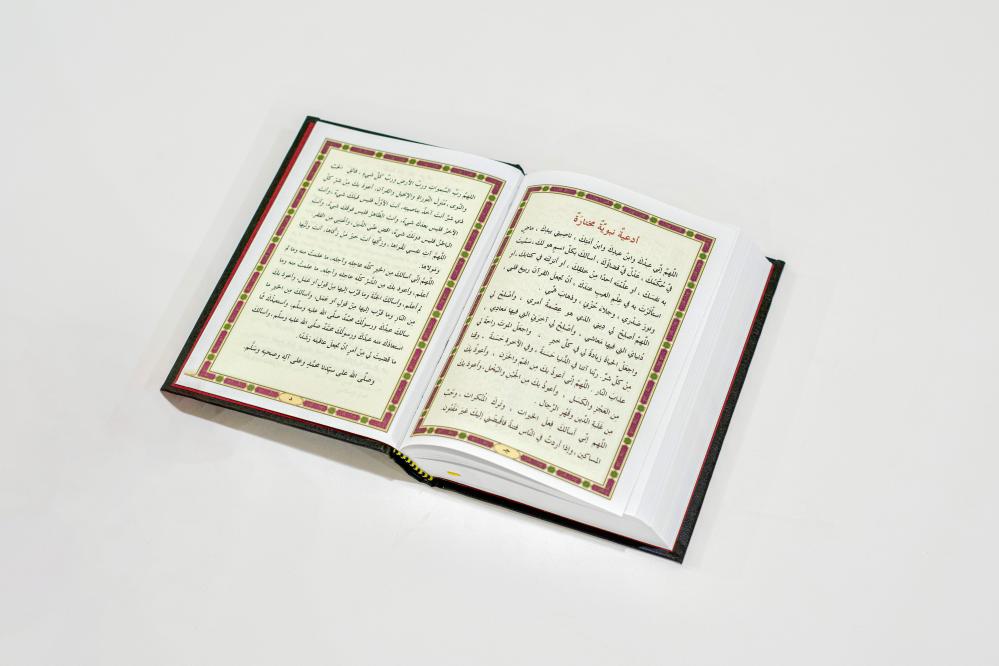 أدعية نبوية مختارة
اللهم إني عبدك وابن عبدك وابن أمتك ، ناصيتي بيدك ، ماض
في حكمك ، عدل في قضاؤك ، أسألك بكل اسم هو لك ، سميت
به نفسك ، أو علمته أحدا من خلقك ، أو أنزلته في كتابك ، أو
استأثرت به في علم الغيب عندك ، أن تجعل القرآن ربيع قلبي ،
ونور صدري ، وجلاء حزني ، وذهاب همي .
اللهم أصلح لي ديني الذي هو عصمة أمري ، وأصلح لي
دنياي التي فيها معاشي ، وأصلح لي آخرتي التي فيها معادي ،
واجعل الحياة زيادة لي في كل خير ، واجعل الموت راحة لي
من كل شر . ربنا آتنا في الدنيا حسنة ، وفي الآخرة حسنة ، وقنا
عذاب النار . اللهم إني أعوذ بك من الهم والحزن ، وأعوذ بك
من العجز والكسل ، وأعوذ بك من الجبن والبخل ، وأعوذ بك
من غلبة الدين وقهر الرجال .
اللهم إني أسألك فعل الخيرات ، وترك المنكرات ، وحب
المساكين ، وإذا أردت في الناس فتنة فاقبضني إليك غير مفتون .
جـ
اللهم رب السموات ورب الأرض ورب كل شيء ، فالق الحب
والنوى ، منزل التوراة والإنجيل والقرآن ، أعوذ بك من شر كل
ذي شر أنت آخذ بناصيته، أنت الأول فليس قبلك شيء، وأنت
الآخر فليس بعدك شيء، وأنت الظاهر فليس فوقك شيء، وأنت
الباطن فليس دونك شيء، اقض عني الدين، وأغنني من الفقر.
اللهم آت نفسي تقواها، وزكها أنت خير من زكاها، أنت وليها
ومولاها.
اللهم إني أسألك من الخير كله عاجله وآجله، ما علمت منه وما لم
أعلم، وأعوذ بك من الشر كله عاجله وآجله، ما علمت منه وما
لم أعلم، وأسألك الجنة وما قرب إليها من قول أو عمل، وأعوذ بك
من النار وما قرب إليها من قول أو عمل، وأسألك من الخير ما
سألك عبدك ورسولك محمد صلى الله عليه وسلم، وأستعيذك مما
استعاذك منه عبدك ورسولك محمد صلى الله عليه وسلم، وأسألك
ما قضيت لي من أمر أن تجعل عاقبته رشدا.
وصلى الله على سيدنا محمد وعلى آله وصحبه وسلم.
د